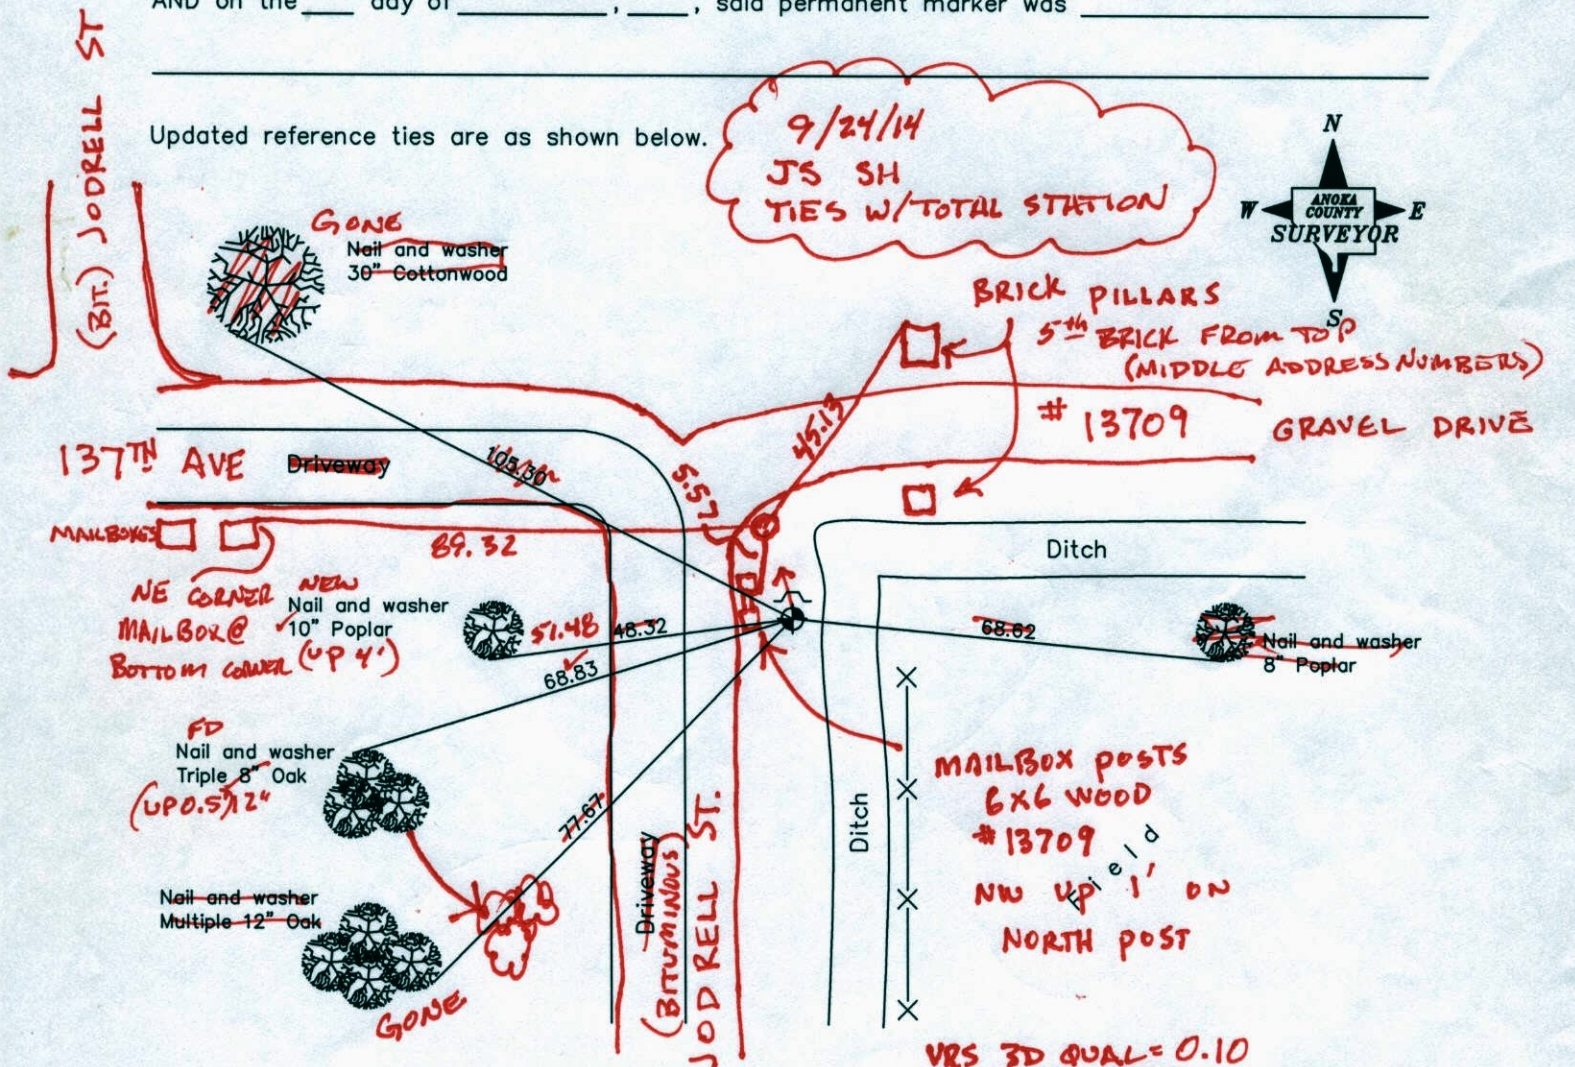 AND on the ___ day of ________, ____, said permanent marker was ________
(BIT.) JODRELL ST
Updated reference ties are as shown below.
9/24/14
JS SH
TIES W/TOTAL STATION
N
W
E
S
ANOKA
COUNTY
SURVEYOR
GONE
Nail and washer
30" Cottonwood
BRICK PILLARS
5th BRICK FROM TOP
(MIDDLE ADDRESS NUMBERS)
45.13
# 13709
GRAVEL DRIVE
137TH AVE
Driveway
105.30
5.57
MAILBOXES
89.32
Ditch
NE CORNER NEW
MAILBOX@
BOTTOM CORNER (UP 4')
Nail and washer
10" Poplar
51.48
48.32
68.83
68.62
Nail and washer
8" Poplar
FD
Nail and washer
Triple 8" Oak
(UP 0.5') 12"
77.67
Nail and washer
Multiple 12" Oak
GONE
Driveway
(BITUMINOUS)
JODRELL ST.
Ditch
Field
MAILBOX POSTS
6X6 WOOD
#13709
NW UP 1' ON
NORTH POST
VRS 3D QUAL = 0.10